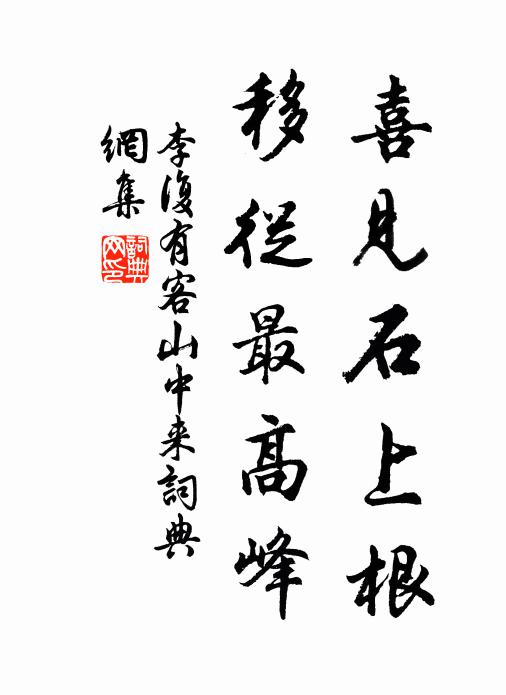 喜見石上根
移從最高峰
李復有客山中来詞典
網集
詞典網印